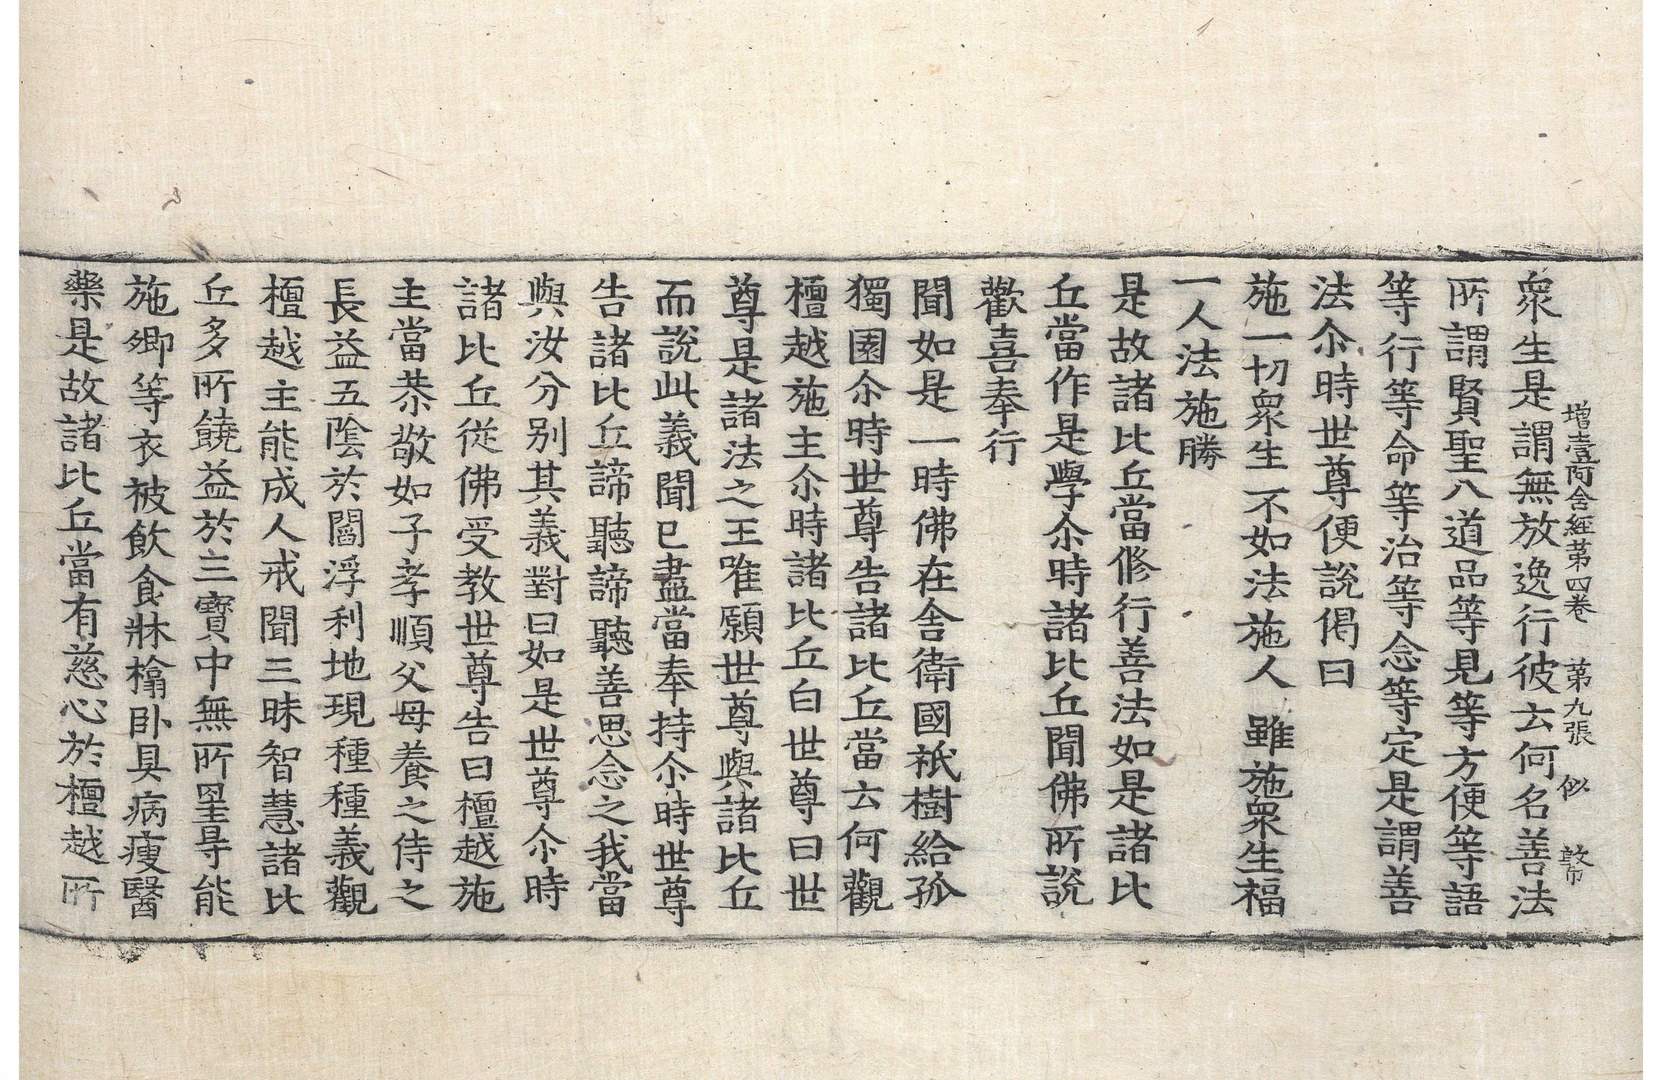 增壹阿含經第四卷 第九張 似
衆生是謂無放逸行彼云何名善法
所謂賢聖八道品等見等方便等語
等行等命等治等念等定是謂善
法尒時世尊便說偈曰
施一切衆生不如法施人 雖施衆生福
一人法施勝
是故諸比丘當修行善法如是諸比
丘當作是學尒時諸比丘聞佛所說
歡喜奉行
聞如是一時佛在舍衛國祇樹給孤
獨園尒時世尊告諸比丘當云何觀
檀越施主尒時諸比丘白世尊曰世
尊是諸法之王唯願世尊與諸比丘
而說此義聞已盡當奉持尒時世尊
告諸比丘諦聽諦聽善思念之我當
與汝分別其義對曰如是世尊尒時
諸比丘從佛受教世尊告曰檀越施
主當恭敬如子孝順父母養之侍之
長益五陰於閻浮利地現種種義觀
檀越主能成人戒聞三昧智慧諸比
丘多所饒益於三寶中無所罣㝵能
施卿等衣被飲食牀榻卧具病瘦醫
藥是故諸比丘當有慈心於檀越所